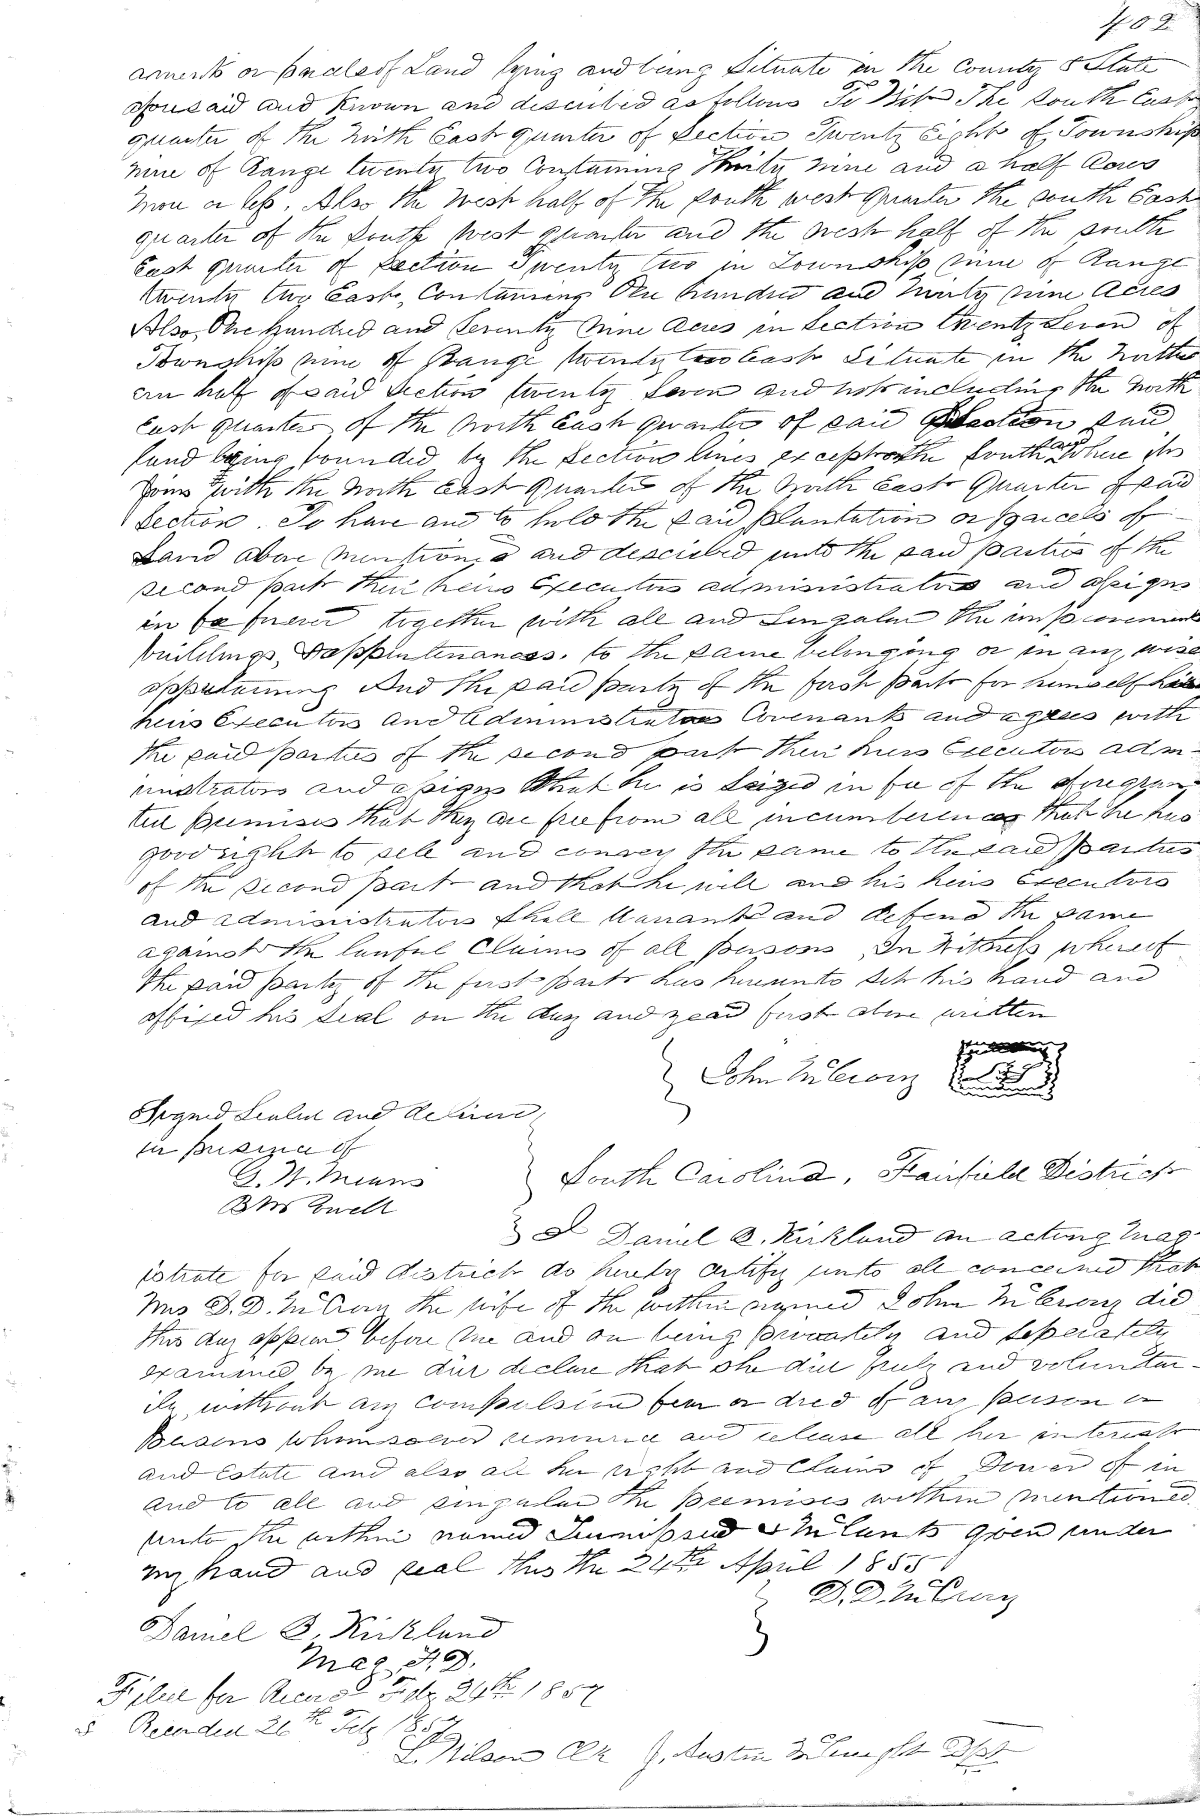 402
aments or parcels of Land lying and being Situate in the County & State
aforesaid and Known and described as follows To Wit The South East
quarter of the North East quarter of Section Twenty Eight of Township
nine of Range twenty two Containing Thirty nine and a half Acres
more or less. Also the West half of the South West quarter the South East
quarter of the South West quarter and the West half of the South
East quarter of Section Twenty two in Township nine of Range
twenty two East, Containing One hundred and Ninety nine Acres
Also, One hundred and Seventy nine Acres in Section twenty Seven of
Township nine of Range twenty two East Situate in the North
ern half of said Section twenty Seven and not including the North
East quarter of the North East quarter of said Section said
land being bounded by the Section lines except on the South and where it
joins with the North East quarter of the North East Quarter of said
Section. To have and to hold the said plantation or parcels of
Land above mentioned and described unto the said parties of the
second part their heirs Executors administrators and assigns
in fee forever together with all and Singular the improvements
buildings, & appurtenances. to the same belonging or in any wise
appertaining And the said party of the first part for himself his
heirs Executors and Administrators Covenants and agrees with
the said parties of the second part their heirs Executors adm-
inistrators and assigns that he is Seized in fee of the aforegran
ted premises that they are free from all incumberences that he has
good right to sell and convey the same to the said parties
of the second part and that he will and his heirs Executors
and administrators Shall Warrant and defend the same
against the lawful Claims of all persons, In Witness whereof
the said party of the first part has hereunto Set his hand and
affixed his Seal on the day and year first above written
John McCrory
Signed Sealed and deliverd
in presence of
G. W. Means
South Carolina, Fairfield District
I Daniel B. Kirkland an acting Mag
istrate for said district do hereby certify unto all concerned that
Mrs D. D. McCrory the wife of the within named John McCrory did
this day appear before me and on being privately and seperately
examined by me did declare that she did freely and voluntar-
ily, without any compulsion fear or dred of any person or
Persons whomsoever renounce and release all her interest
and Estate and also all her right and Claim of Dower of in
and to all and singular the premises within mentioned
unto the within named & McCants given under
my hand and seal this the 24th April 1855
D. D. McCrory
Daniel B. Kirkland
Mag. F. D.
Filed for Record Feby 24th 1857
& Recorded 26th Feby 1857
L. Wilson Clk J. Austin Dpt